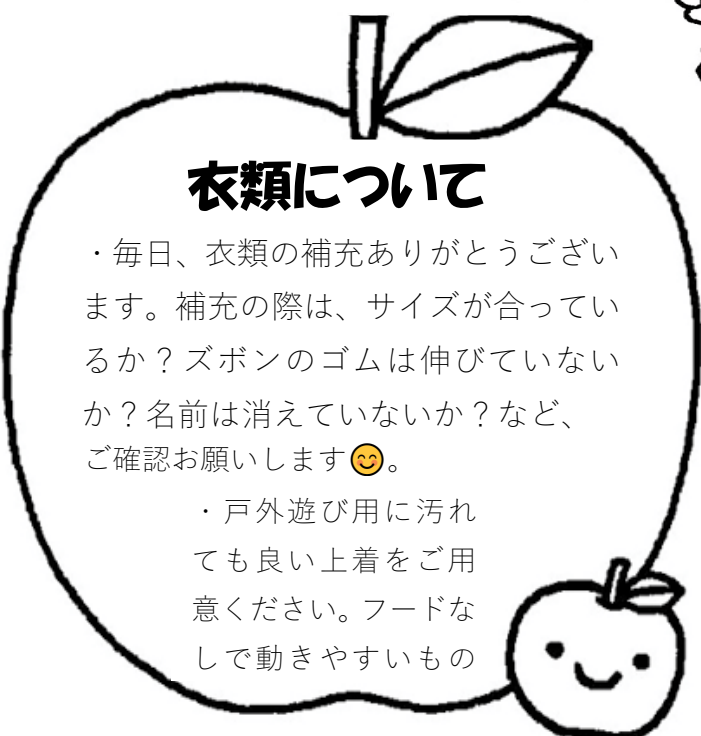 衣類について
・毎日、衣類の補充ありがとうござい
ます。補充の際は、サイズが合ってい
るか？ズボンのゴムは伸びていない
か？名前は消えていないか？など、
ご確認お願いします😊。
・戸外遊び用に汚れ
ても良い上着をご用
意ください。フードな
しで動きやすいもの